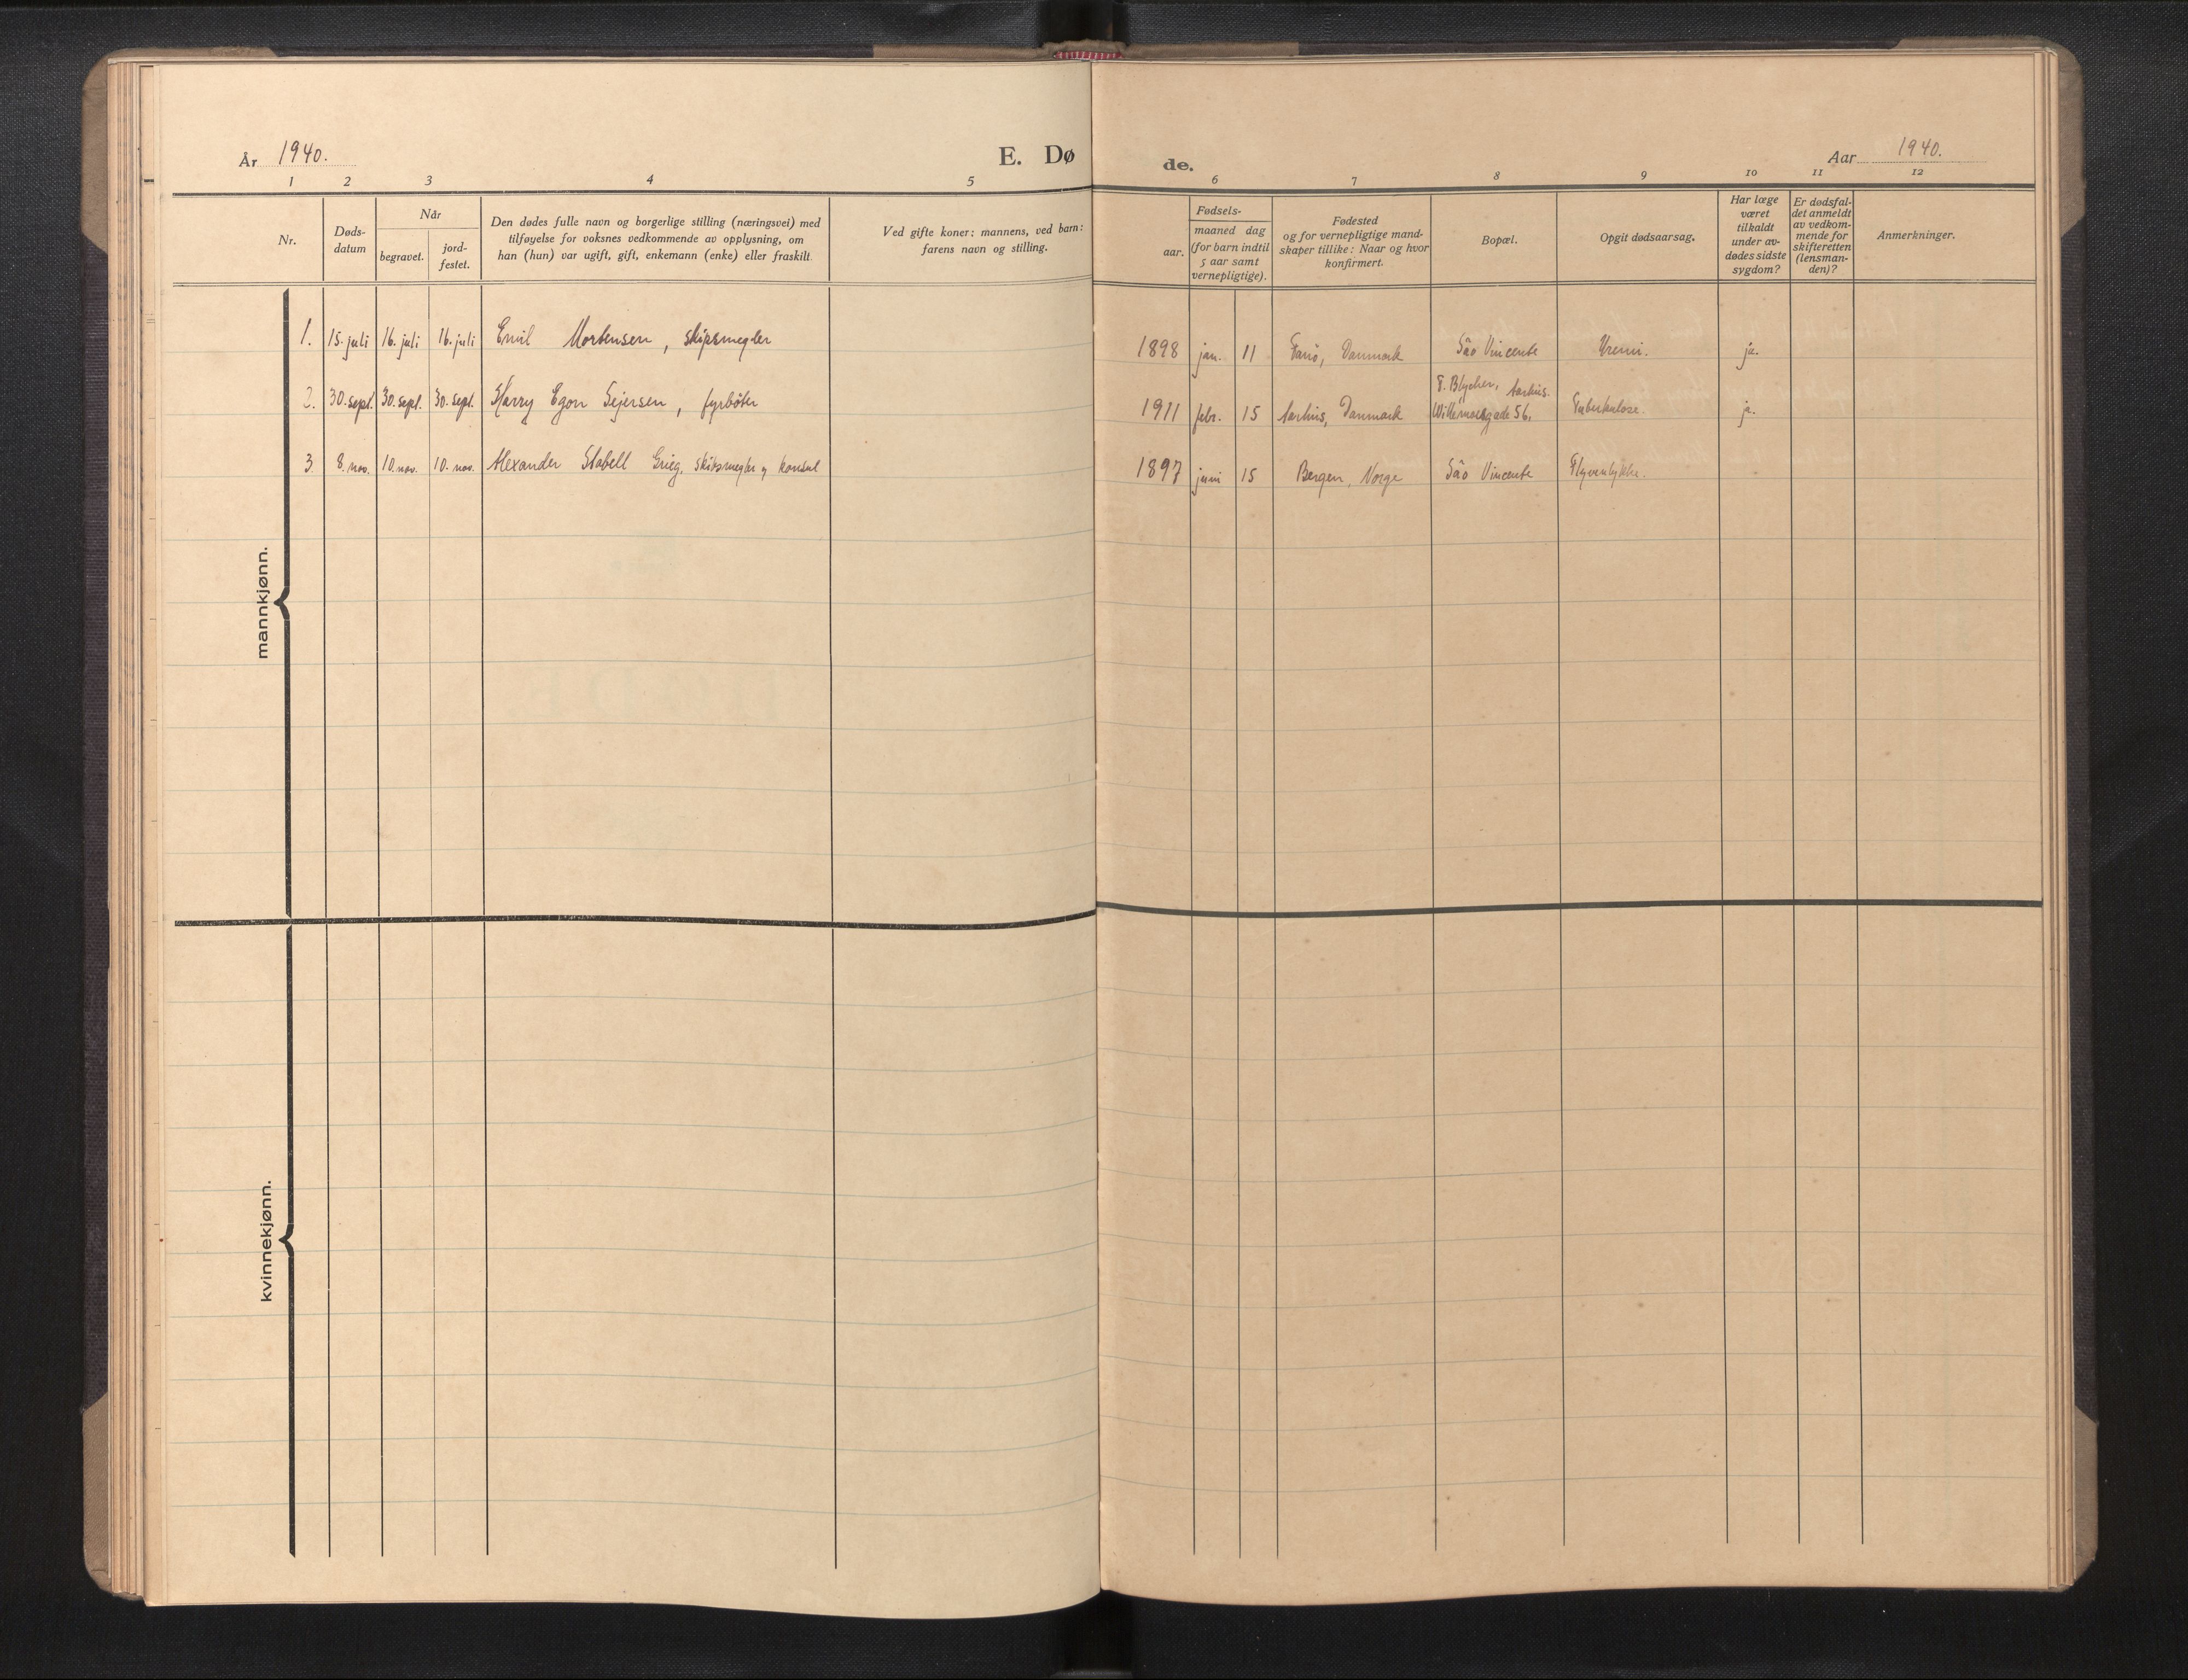 År 1940.
E. Dø de.
Aar 1940.
1 2 3 4 5 6 7 8 9 10 11 12
Nr.
Døds-
datum
Når
begravet.
jord-
festet.
Den dødes fulle navn og borgerlige stilling (næringsvei) med
tilføyelse for voksnes vedkommende av opplysning, om
han (hun) var ugift, gift, enkemann (enke) eller fraskilt.
Ved gifte koner: mannens, ved barn:
farens navn og stilling.
Fødsels-
aar.
maaned dag
(for barn indtil
5 aar samt
vernepligtige).
Fødested
og for vernepligtige mand-
skaper tillike: Naar og hvor
konfirmert.
Bopæl.
Opgit dødsaarsag.
Har læge
været
tilkaldt
under av-
dødes sidste
sygdom?
Er dødsfal-
det anmeldt
av vedkom-
mende for
skifteretten
(lensman-
den)?
Anmerkninger.
mannkjønn.
1. 15. juli 16. juli 16. juli Emil Mortensen, skipsmegler 1898 jan. 11 Fanö, Danmark São Vincente Uremi. ja.
2. 30. sept. 30. sept. 30. sept. Harry Egon Sejersen, fyrböter 1911 febr. 15 Aarhus, Danmark Blycher, Aarhus.
Willemoesgade 56, Tuberkulose. ja.
3. 8. nov. 10. nov. 10. nov. Alexander Stabell Grieg, skipsmegler og konsul 1897 juni 15 Bergen, Norge São Vincente Flyveulykke.
kvinnekjønn.